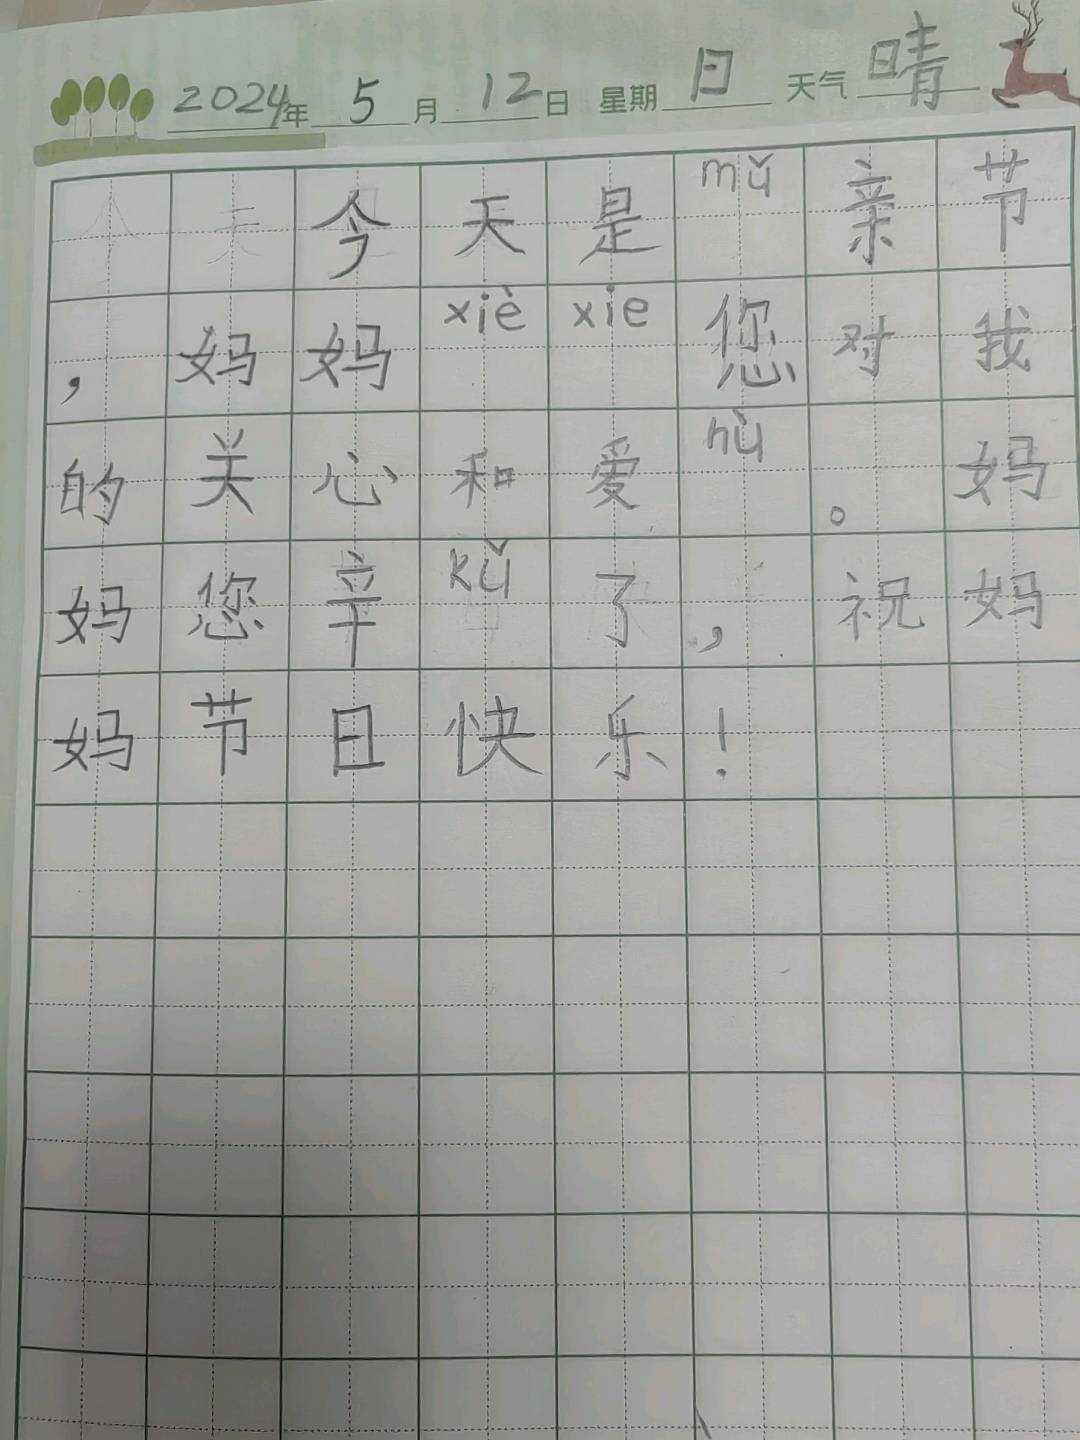 2024年 5月 12日 星期 日 天气 晴
今天是mǔ亲节
，妈妈xiè xie您对我
的关心和爱hù。妈
妈您辛kǔ了，祝妈
妈节日快乐！